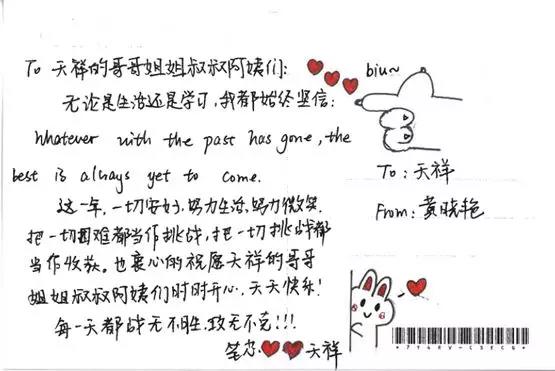 To 天祥的哥哥姐姐叔叔阿姨们:
无论是生活还是学习,我都始终坚信:
Whatever with the past has gone, the
best is always yet to come.
这一年,一切安好,努力生活,努力微笑.
把一切困难都当作挑战,把一切挑战都
当作收获。也衷心的祝愿天祥的哥哥
姐姐叔叔阿姨们时时开心,天天快乐!
每一天都战无不胜,攻无不克!!!
笔芯❤❤天祥
biu~
To:天祥
From:黄晓艳